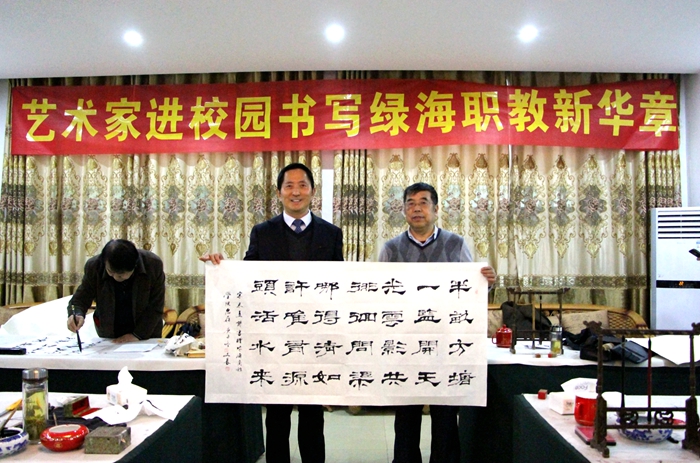 艺术家进校园书写绿海职教新华章
半畝方塘
一鑑開天
光雲影共
徘徊問渠
那得清如
許有源
頭活水来